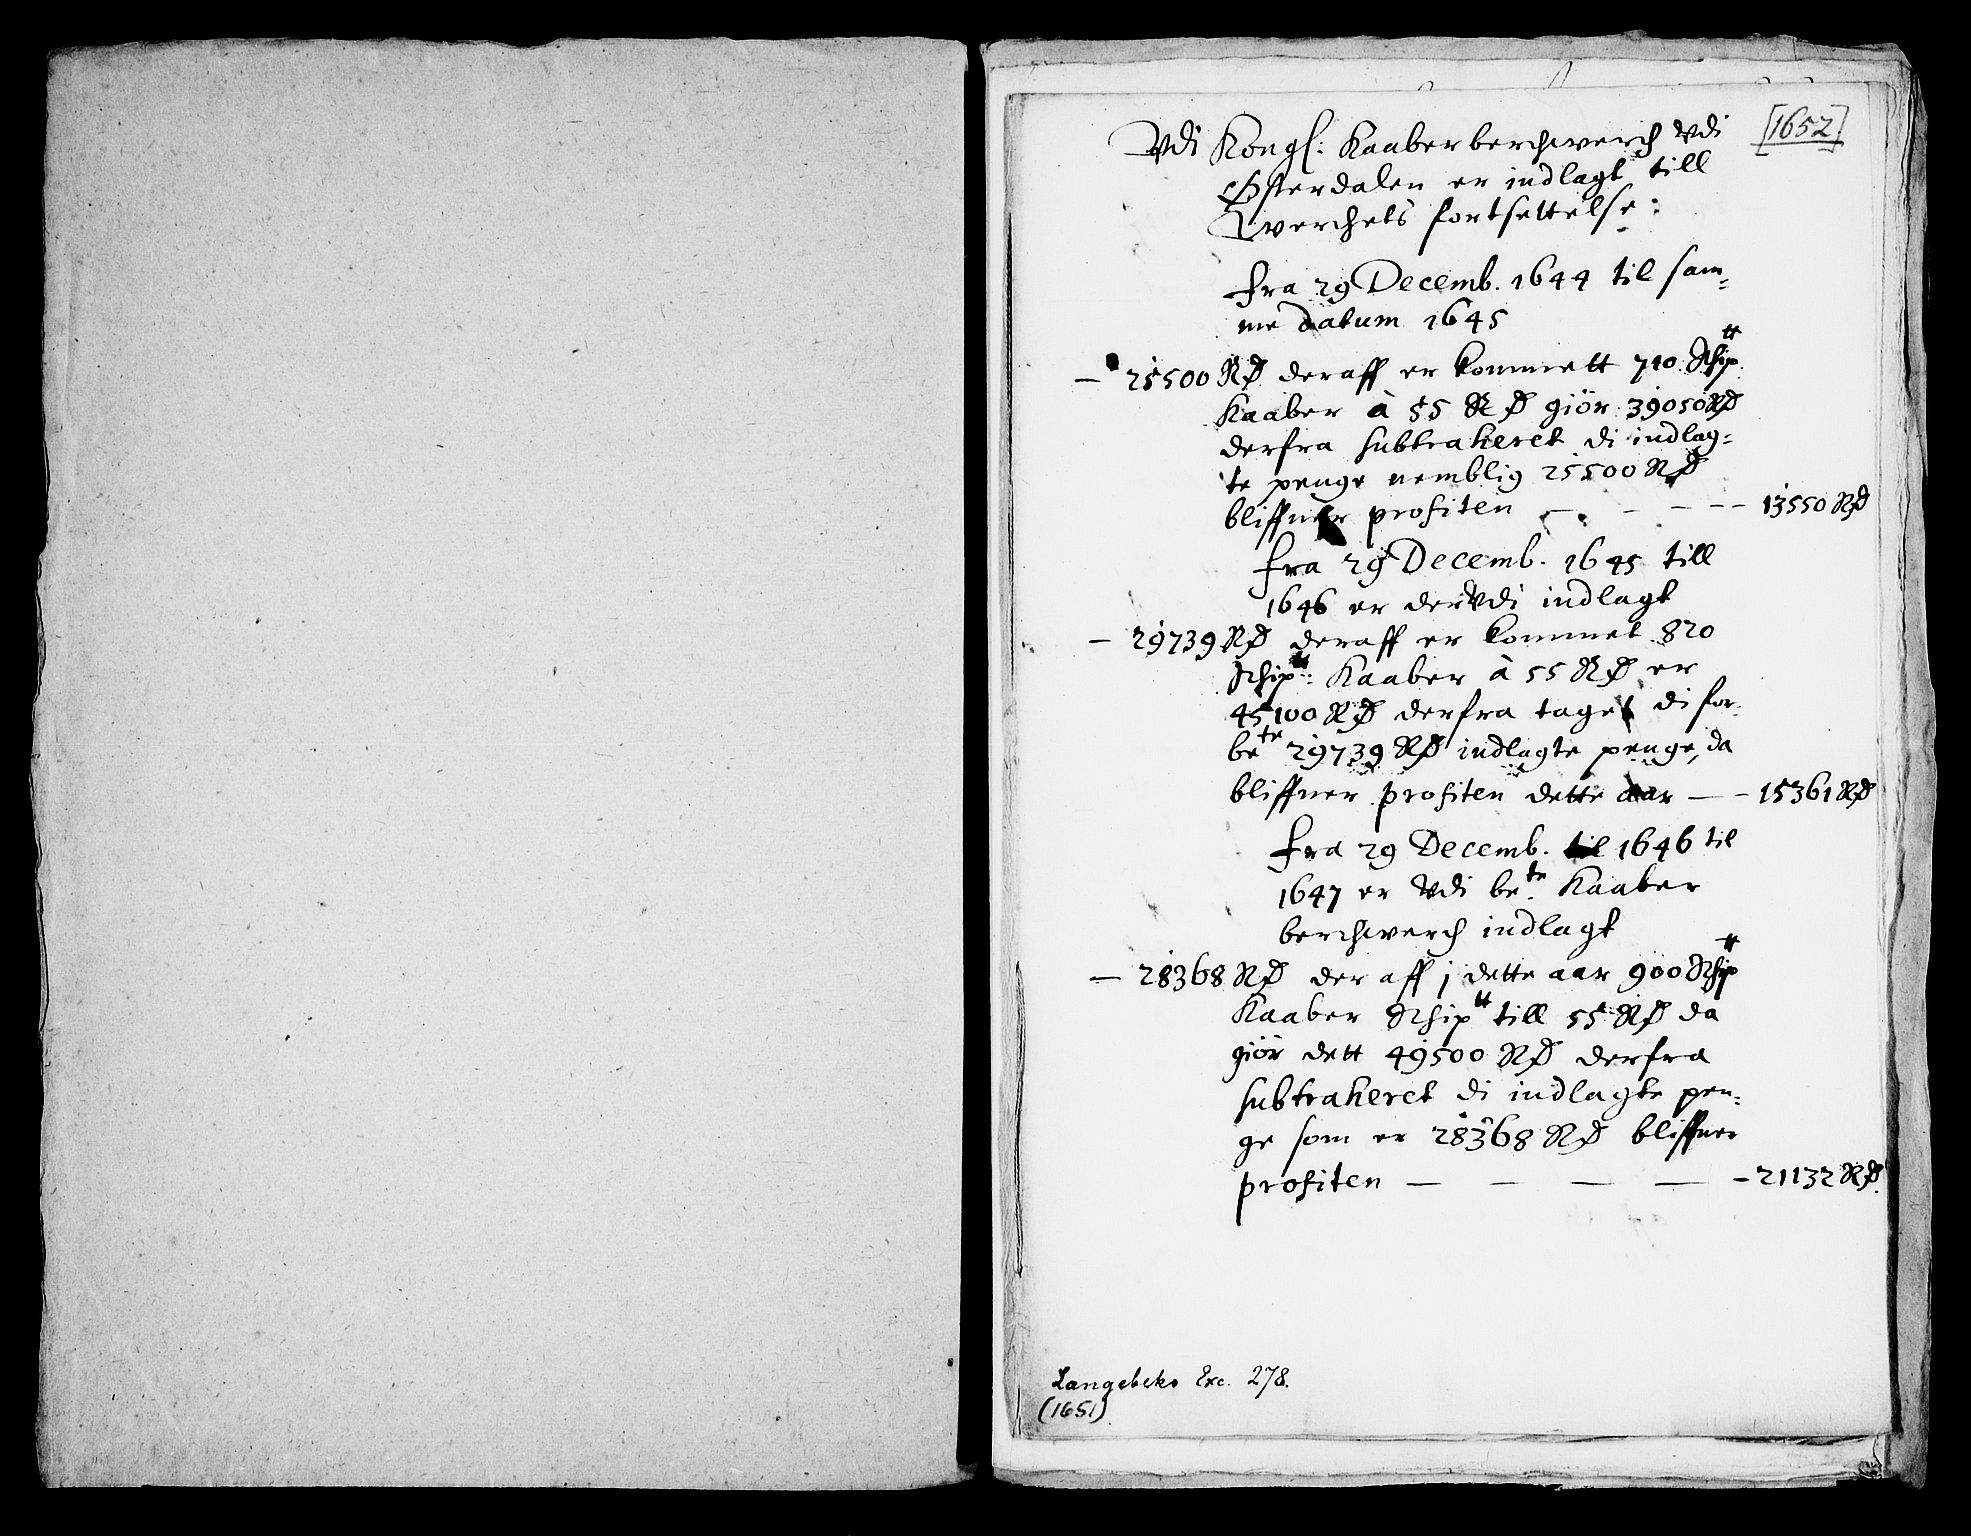 [1652]
Vdi Kongl: Kaaberberchwerch vdi
Østerdalen er indlagt till
werchets fortsettelse:
Fra 29 Decemb. 1644 til sam=
me datum 1645
— 25500 RD deraff er kommett 710 Schip tt
Kaaber à 55 RD giör 39050 RD
derfra subtraheret di indlag=
te penge nemblig 25500 RD
bliffuer profiten — - - - - 13550 RD
Fra 29 Decemb. 1645 till
1646 er der vdi indlagt
— 29739 RD deraff er kommet 820
Schip tt: Kaaber à 55 RD er
45100 RD derfra taget di for-
bete 29739 RD indlagte penge, da
bliffuer profiten dette aar — - 15361 RD
Fra 29 Decemb. til 1646 til
1647 er vdi bete Kaaber
berchwerch indlagt
— 28368 RD der aff j dette aar 900 Schip tt
Kaaber Schip tt till 55 RD da
giör dett 49500 RD derfra
subtraheret di indlagte pen=
ge som er 28368 RD bliffuer
profiten — — — — - 21132 RD.
Langebeks Exc. 278.
(1651)